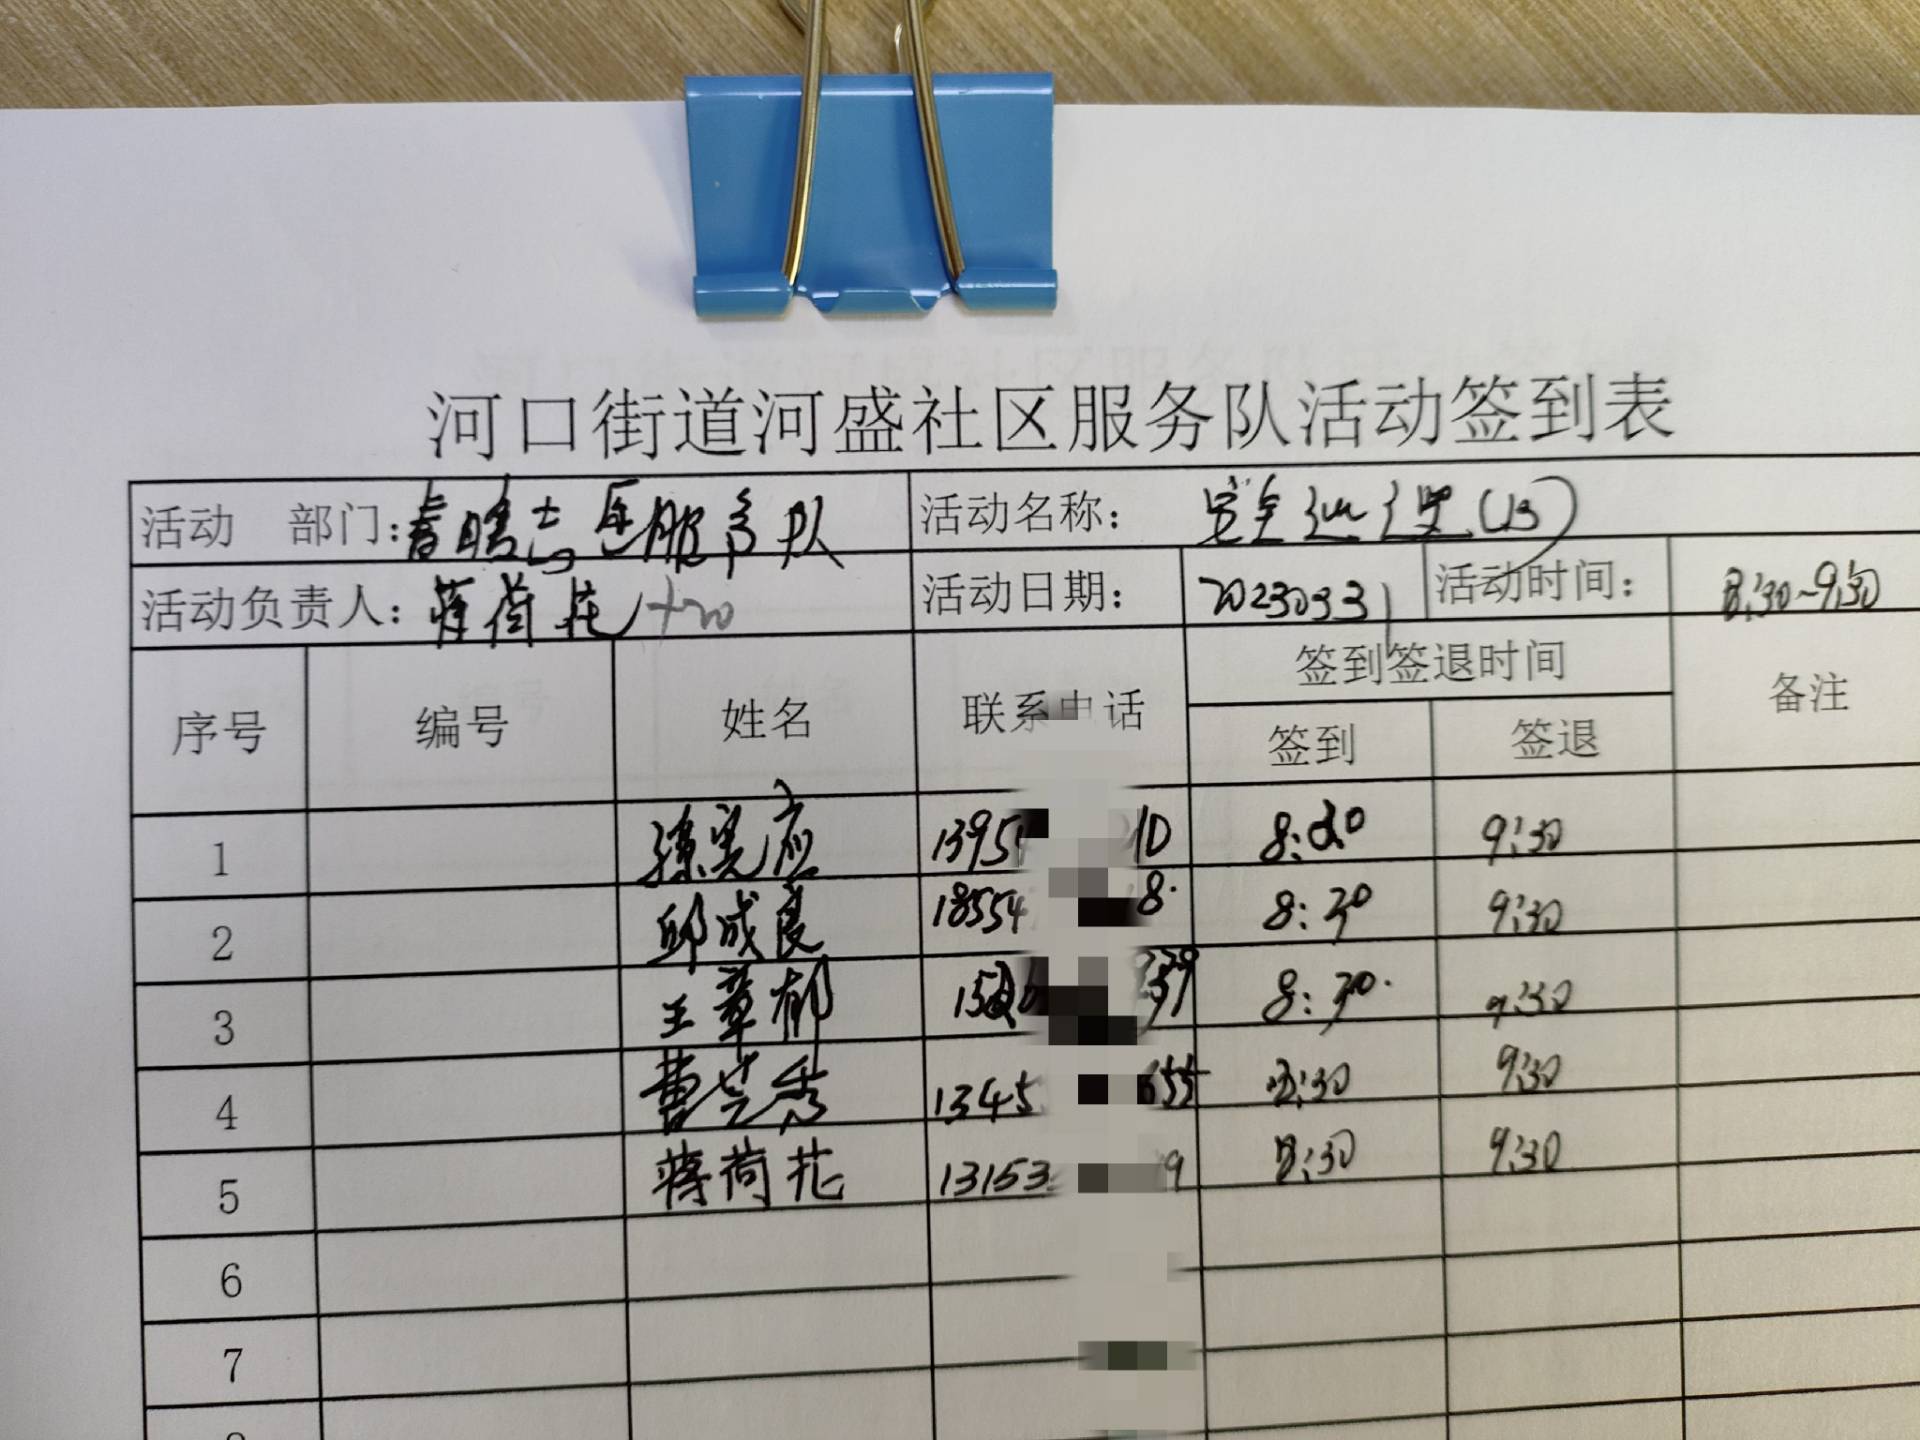 河口街道河盛社区服务队活动签到表
活动 部门: 服务队 活动名称: 安全巡逻(13)
活动负责人: 蒋荷花 +20 活动日期: 20230331 活动时间: 8:30~9:30
序号 编号 姓名 联系电话 签到签退时间 备注
签到 签退
1 13954 10 8:30 9:30
2 邱成良 18554 8. 8:30 9:30
3 王章郁 8:30. 9:30
4 曹兰秀 1345 655 8:30 9:30
5 蒋荷花 13153 9 8:30 9:30
6
7